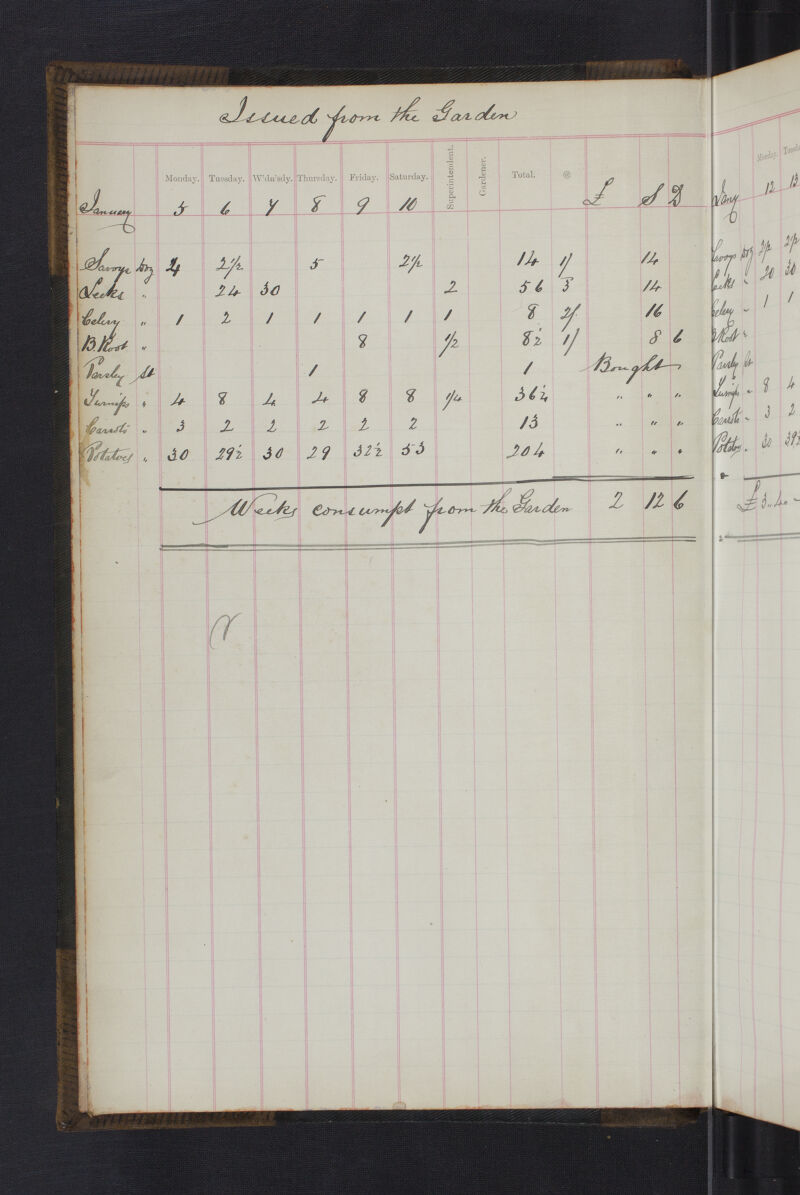 Issued from the Garden
Monday. Tuesday. W'dn'sdy. Thursday. Friday. Saturday. Superintendent. Gardener. Total. @ £ S D
January 5 6 7 8 9 10
Savoys Doz 4 2 1/2 5 2 1/2 14 1/ 14
Leeks " 24 30 2 56 3 14
Celery " 1 2 1 1 1 1 1 8 2/ 16
B. Root " 8 1/2 8 1/2 1/ 8 6
Parsley St 1 1 Bought
Turnips " 4 8 4 4 8 8 1/4 36 1/4 " " "
Carrots " 3 2 2 2 2 2 13 " " "
Potatoes " 30 29 1/2 30 29 32 1/2 53 204 " " "
Weeks consumpt from the Garden 2 12 6
Monday.
Jany 12 13
Savoys Doz 2 1/2 2 1/2
Leeks " 20 30
Celery " 1 1
B Root "
Parsley St
Turnips " 8 4
Carrots " 3 2
Potatoes " 30 39 1/2
£3..4..